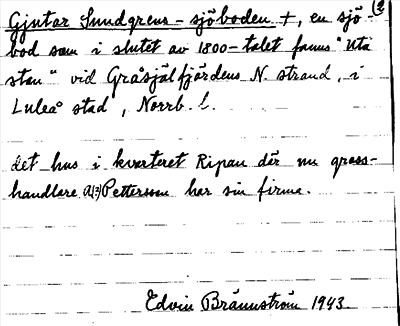 Gjutar Sundgrens-sjöboden +, en sjö- (2
bod som i slutet av 1800-talet fanns "uta
stan" vid Gråsjälfjärdens N. strand, i
Luleå stad, Norrb. l.
det hus i kvarteret Ripan där nu gross-
handlare A(?) Petterson har sin firma.
Edvin Brännström 1943